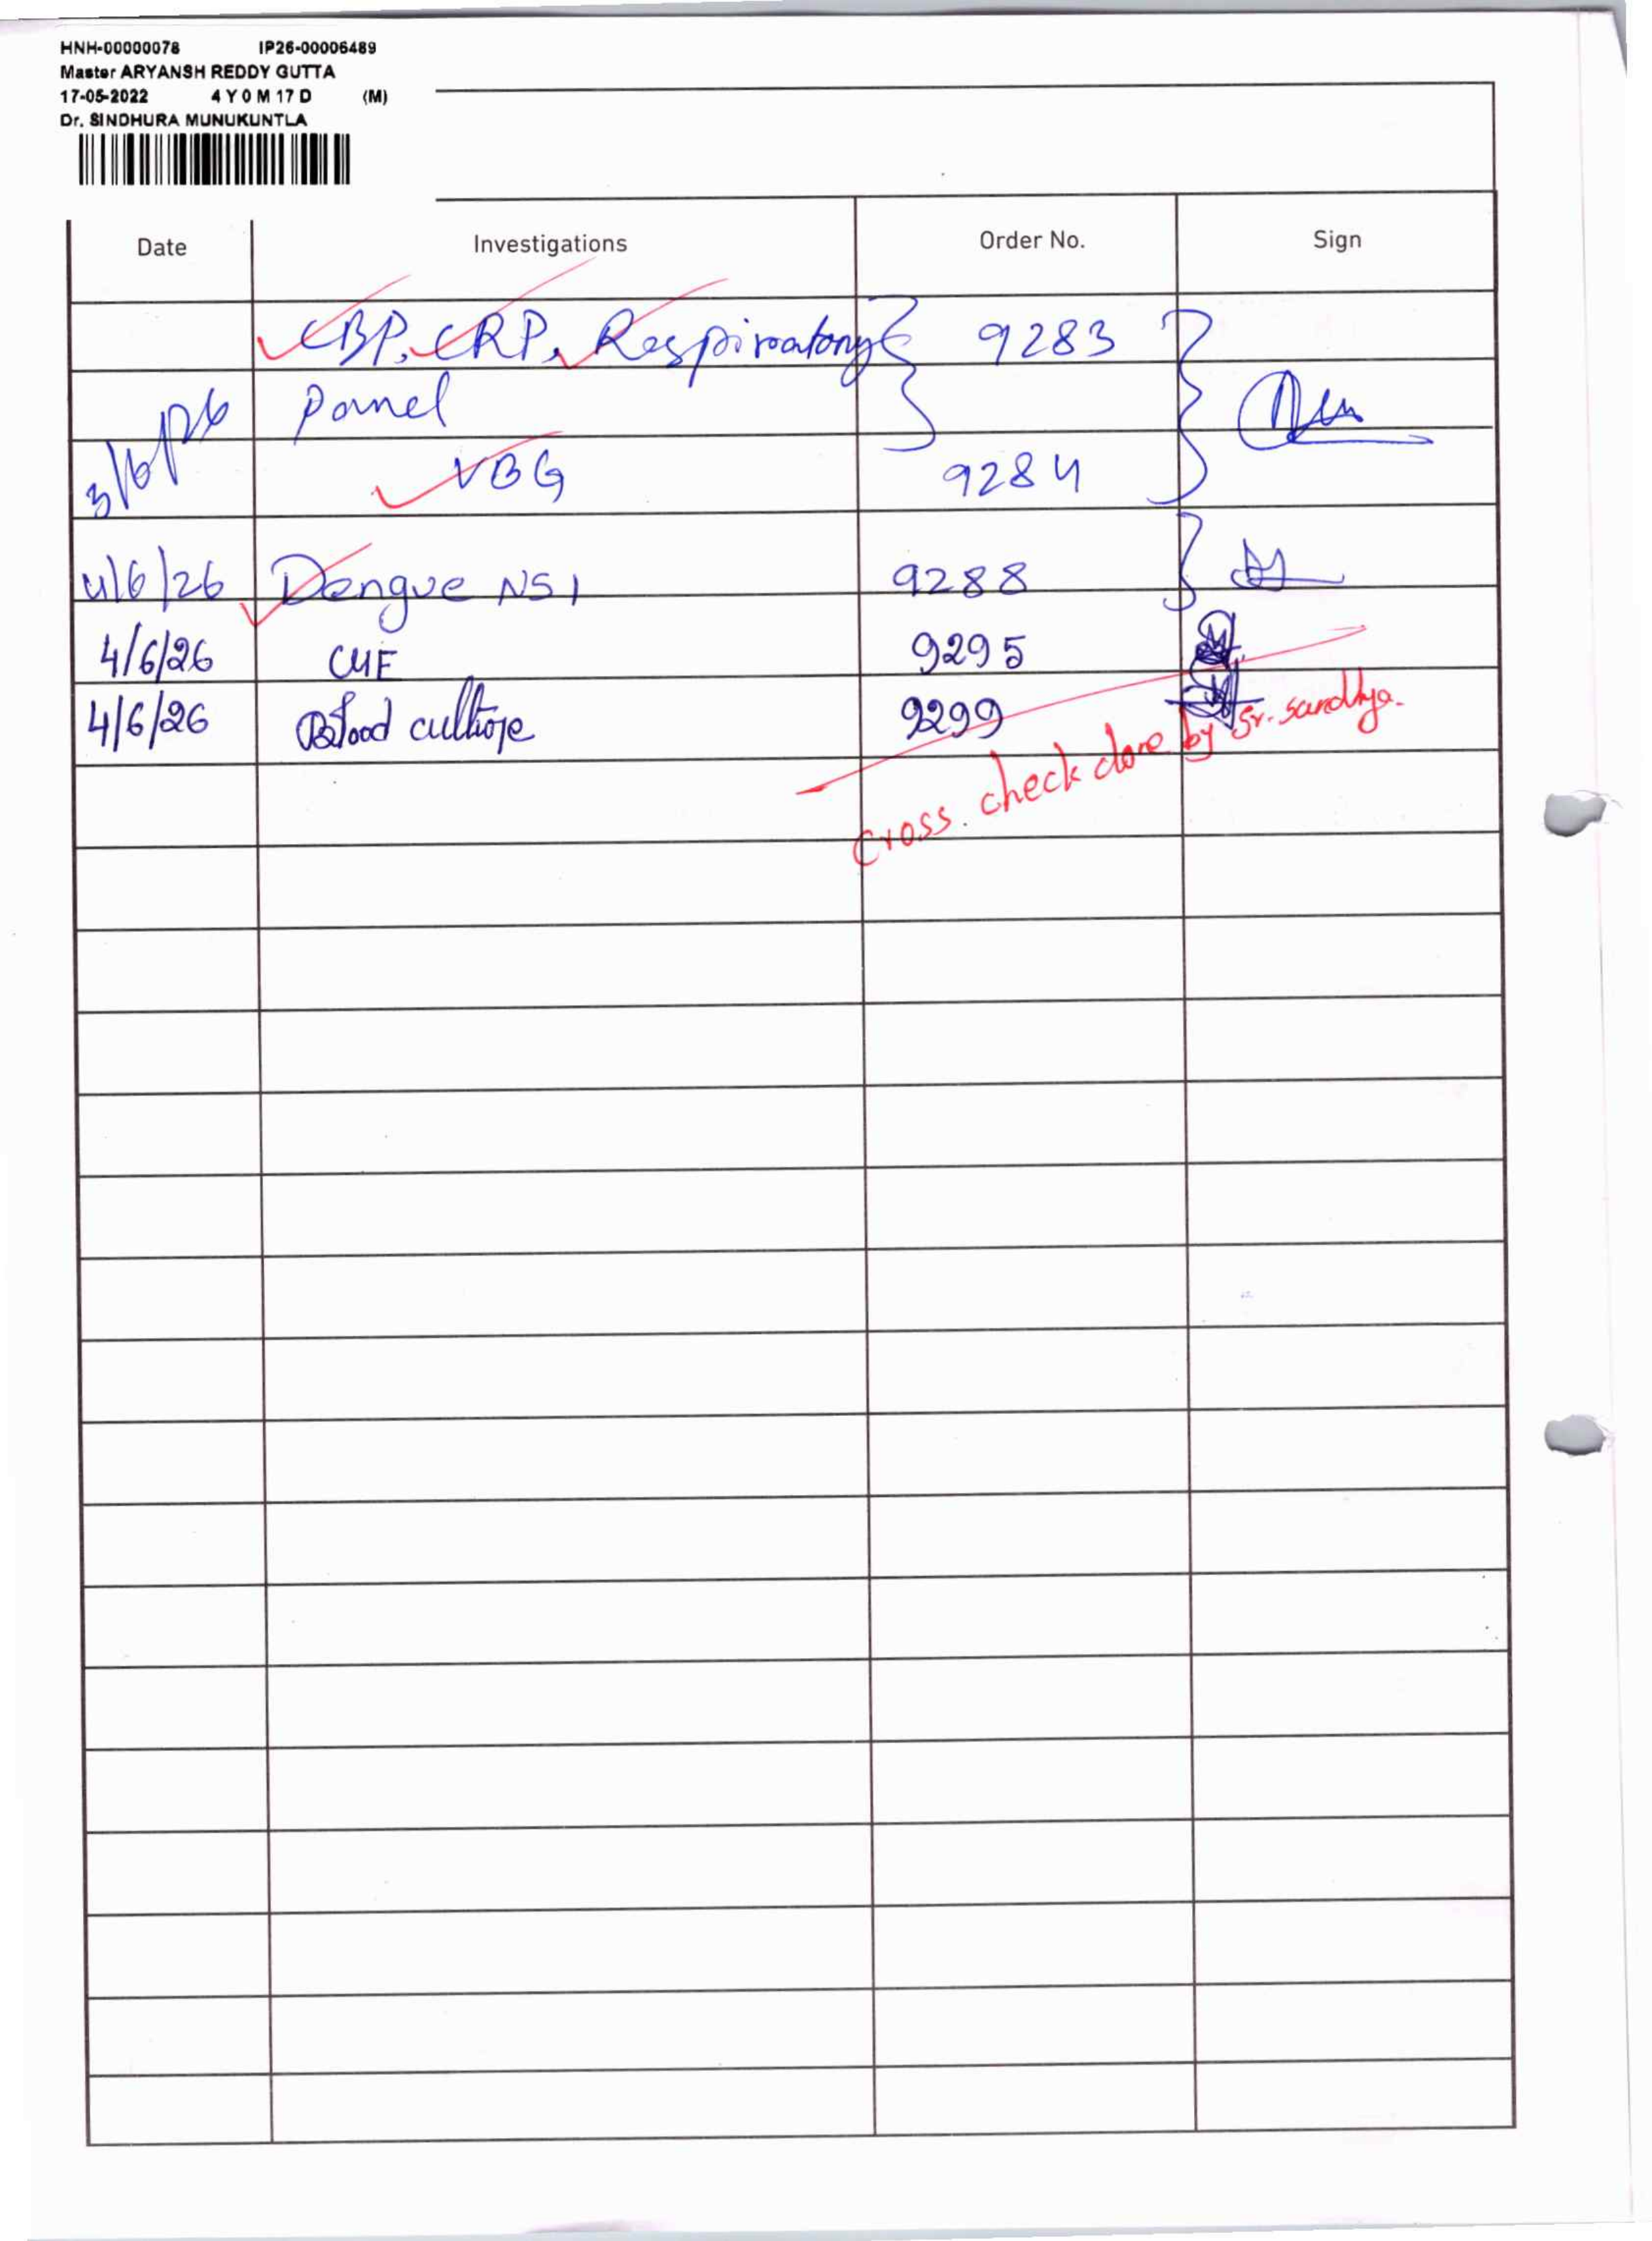 HNH-00000078 IP26-00006489
Master ARYANSH REDDY GUTTA
17-05-2022 4 Y 0 M 17 D (M)
Dr. SINDHURA MUNUKUNTLA
Date Investigations Order No. Sign
CBP, CRP, Respiratory 9283
3/6/26 Panel
VBG 9284
4/6/26 Dengue NS1 9288
4/6/26 CUE 9295
4/6/26 Blood culture 9299
Cross check done by Sr. Sandhya.